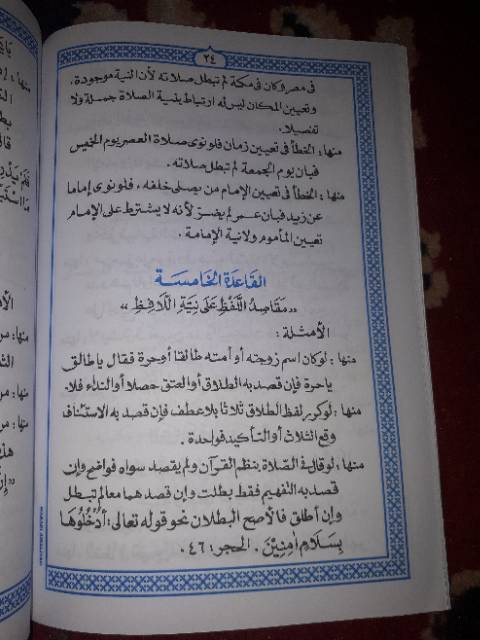 ٢٤
في مصر وكان في مكة لم تبطل صلاته لأن النية موجودة،
وتعيين المكان ليس له ارتباط بنية الصلاة جملة ولا
تفصيلا.
منها: الخطأ في تعيين زمان فلو نوى صلاة العصر يوم الخميس
فبان يوم الجمعة لم تبطل صلاته.
منها: الخطأ في تعيين الإمام من يصلى خلفه، فلو نوى إماما
عن زيد فبان عمر لم يضر لأنه لا يشترط على الإمام
تعيين المأموم ولا نية الإمامة.
القاعدة الخامسة
«مَقَاصِدُ اللَّفْظِ عَلَى نِيَّةِ اللَّافِظِ»
الأمثلة:
منها: لو كان اسم زوجته أو أمته طالقا أو حرة فقال يا طالق
يا حرة فإن قصد به الطلاق أو العتق حصلا أو النداء فلا.
منها: لو كرر لفظ الطلاق ثلاثا بلا عطف فإن قصد به الاستئناف
وقع الثلاث أو التأكيد فواحدة.
منها: لو قال في الصلاة بنظم القرآن ولم يقصد سواه فواضح وإن
قصد به التفهيم فقط بطلت وإن قصدهما معا لم تبطل
وإن أطلق فالأصح البطلان نحو قوله تعالى: اُدْخُلُوْهَا
بِسَلَامٍ اٰمِنِيْنَ. الحجر: ٤٦.